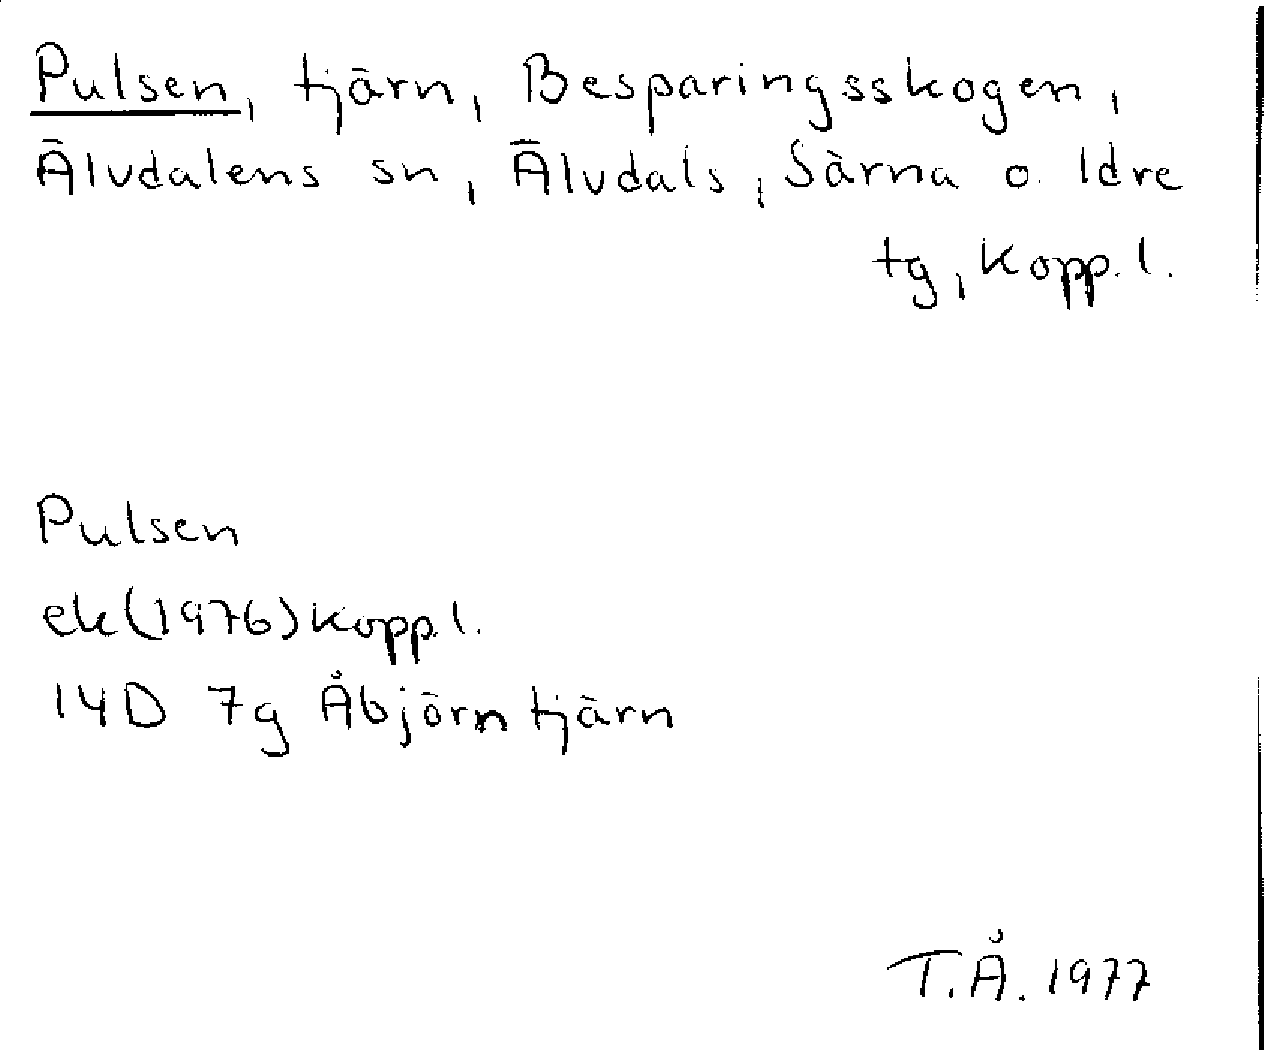 Pulsen, tjärn, Besparingsskogen,
Älvdalens sn, Älvdals, Särna o. Idre
tg, Kopp. l.
Pulsen
ek (1976) Kopp. l.
14D 7g Åbjörntjärn
T.Å. 1977